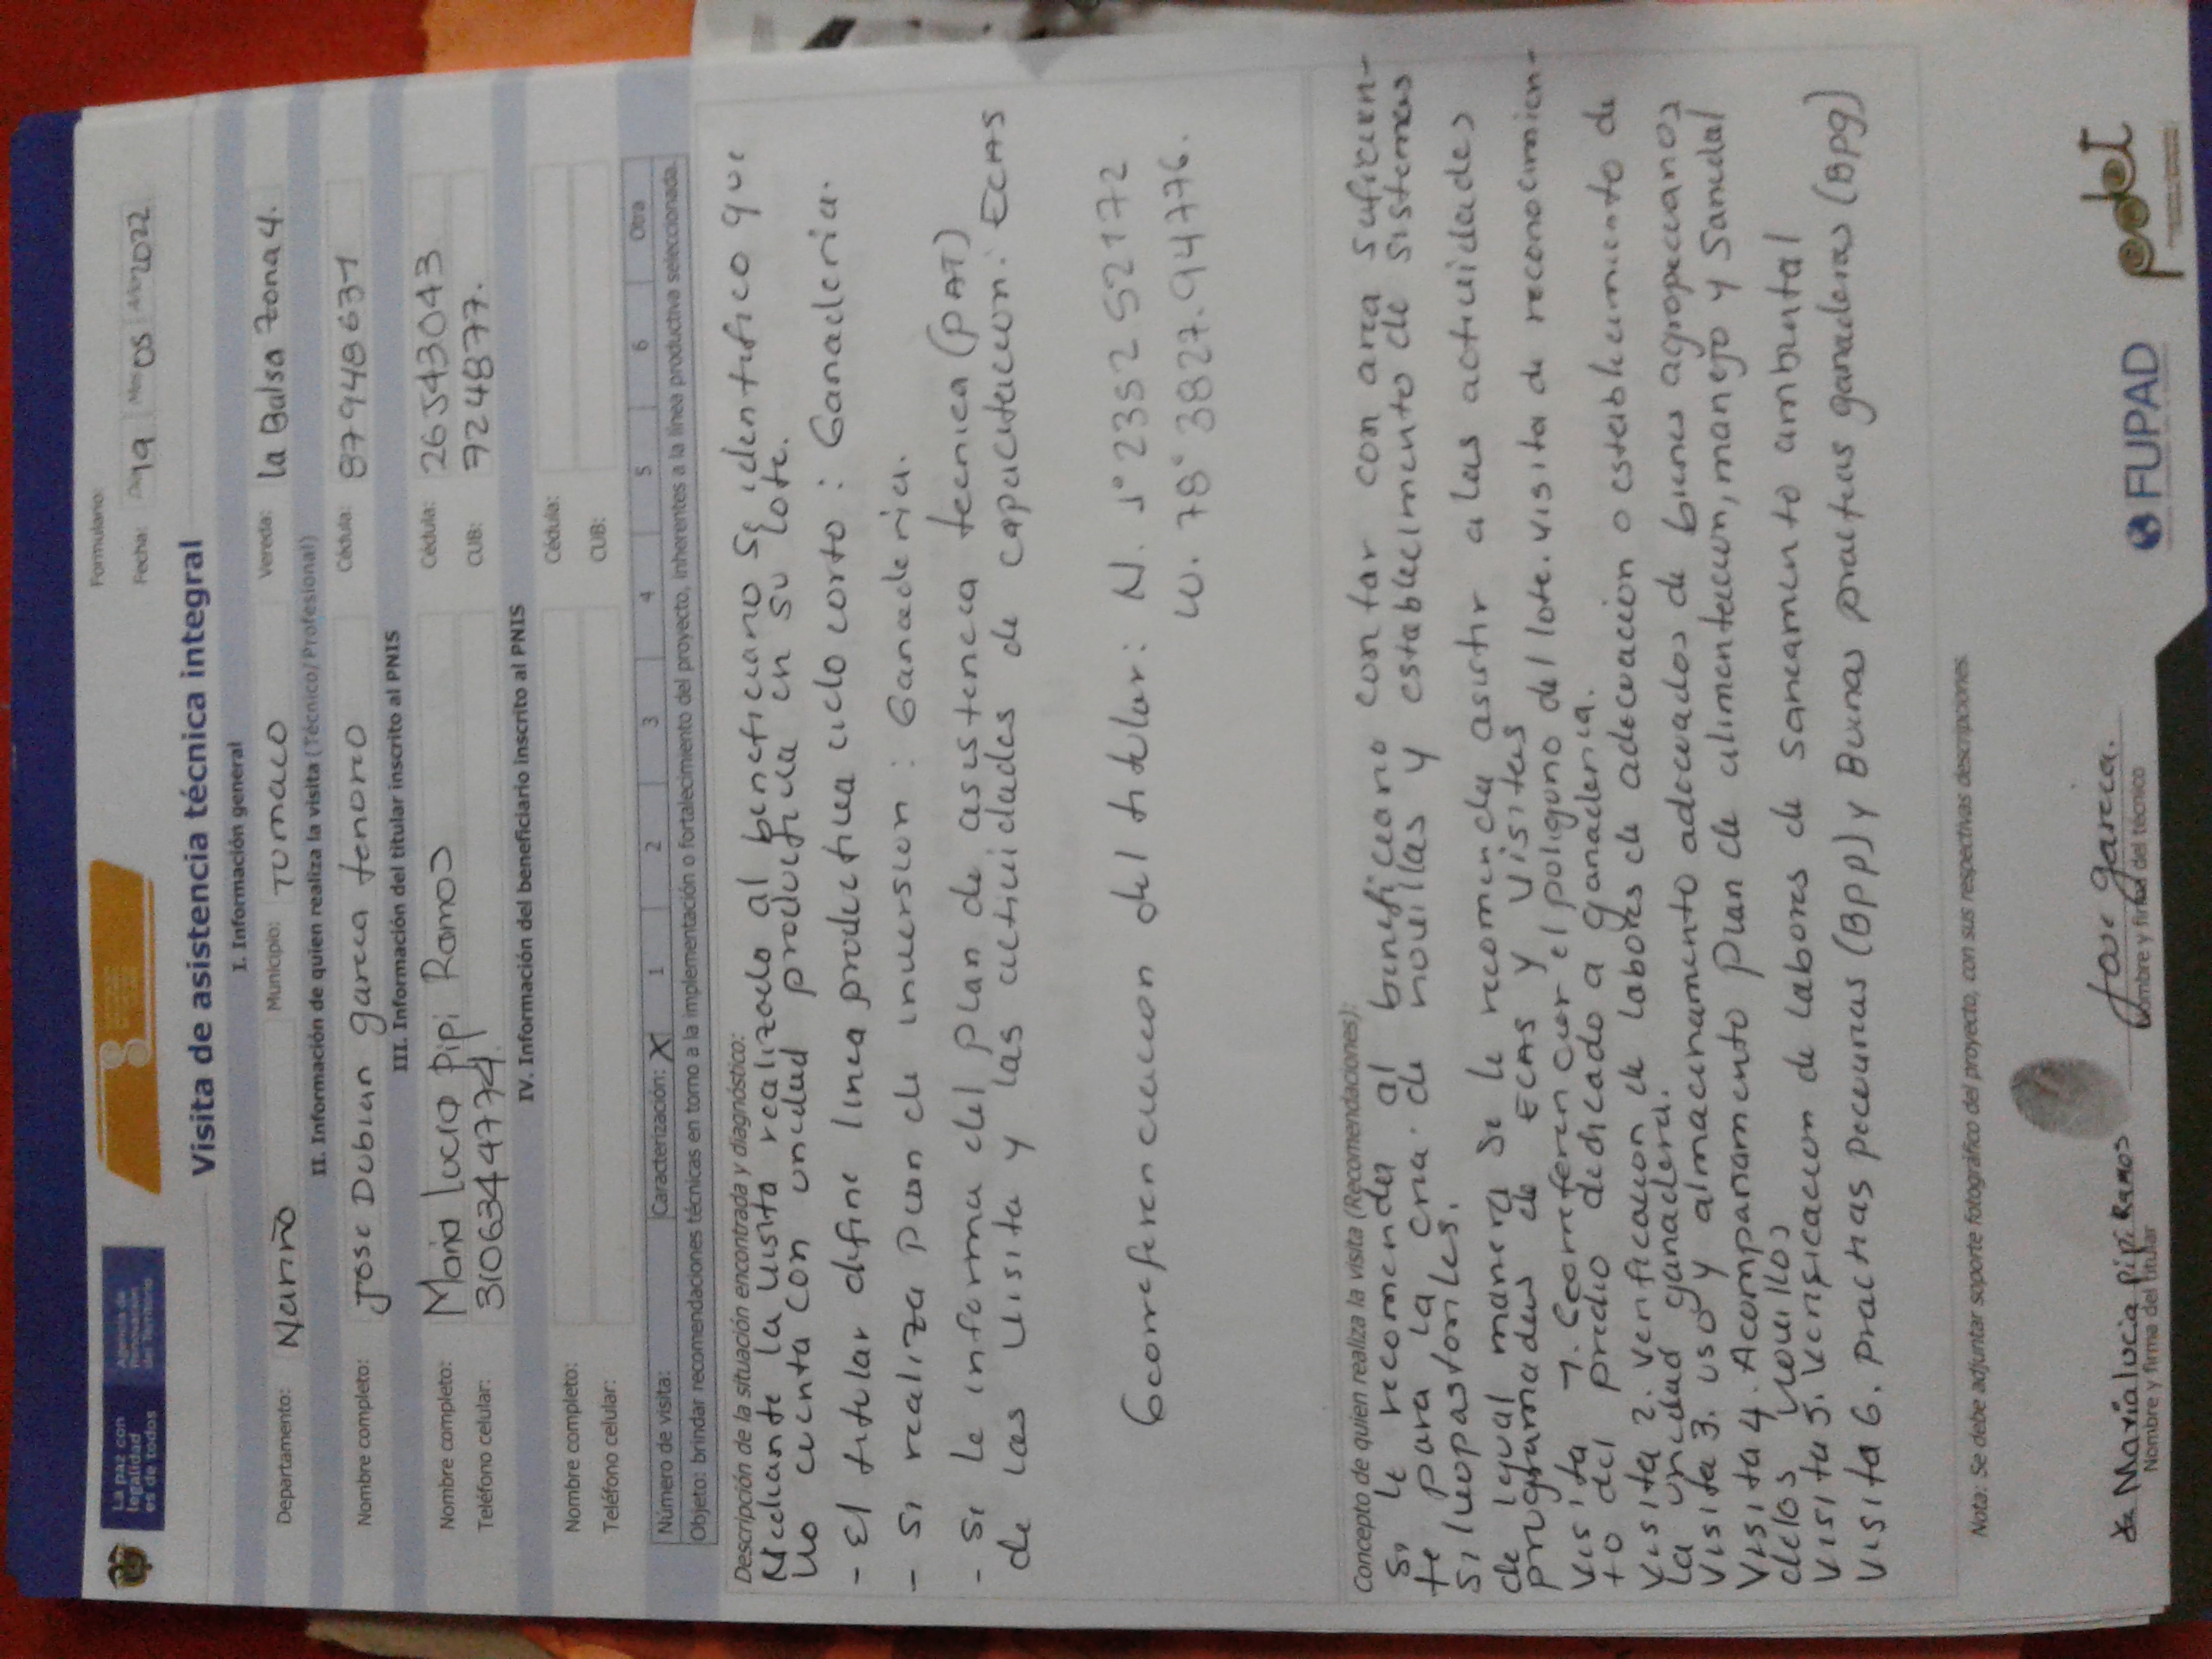 La paz con
legalidad
es de todos
Agencia de
Renovación
del Territorio
Formulario:
Fecha: Día 19 Mes 05 Año 2022
Visita de asistencia técnica integral
I. Información general
Departamento: Nariño Municipio: Tumaco Vereda: la Balsa zona 4.
II. Información de quien realiza la visita (Técnico/Profesional)
Nombre completo: Jose Dubian garcia tenorio Cédula: 87948631
III. Información del titular inscrito al PNIS
Nombre completo: Maria Lucia Pipi Ramos Cédula: 26543043
Teléfono celular: 3106344774 CUB: 9224877.
IV. Información del beneficiario inscrito al PNIS
Nombre completo: Cédula:
Teléfono celular: CUB:
Número de visita: Caracterización: X 1 2 3 4 5 6 Otra
Objeto: brindar recomendaciones técnicas en torno a la implementación o fortalecimiento del proyecto, inherentes a la línea productiva seleccionada.
Descripción de la situación encontrada y diagnóstico:
Mediante la visita realizado al beneficiario se identifico que
no cuenta con unidad productiva en su lote.
- El titular define linea productiva ciclo corto: Ganaderia.
- Se realiza plan de inversion: Ganaderia.
- Se le informa del plan de asistencia tecnica (PAT)
de las visita y las actividades de capacitacion: ECAS
Georeferenciacion del titular: N. 1° 2352 52172
W. 78° 3827.94776.
Concepto de quien realiza la visita (Recomendaciones):
Se le recomienda al beneficiario contar con area suficien-
te para la cria de novillas y establecimiento de sistemas
silvopastoriles.
de igual manera se le recomienda asistir a las actividades
programadas de ECAS y visitas
visita 1. Georreferenciar el poligono del lote. visita de reconocimien-
to del predio dedicado a ganaderia.
visita 2. verificacion de labores de adecuacion o establecimiento de
la unidad ganadera.
visita 3. uso y almacenamiento adecuados de bienes agropecuarios
visita 4. Acompañamiento Plan de alimentacion, manejo y Sanidad
delos novillos
visita 5. verificacion de labores de saneamiento ambiental
visita 6. practicas pecuarias (BPP) y Buenas practicas ganaderas (BPG)
Nota: Se debe adjuntar soporte fotográfico del proyecto, con sus respectivas descripciones.
Maria lucia pipi Ramos
Nombre y firma del titular
Jose garcia.
Nombre y firma del técnico
FUPAD
pdet